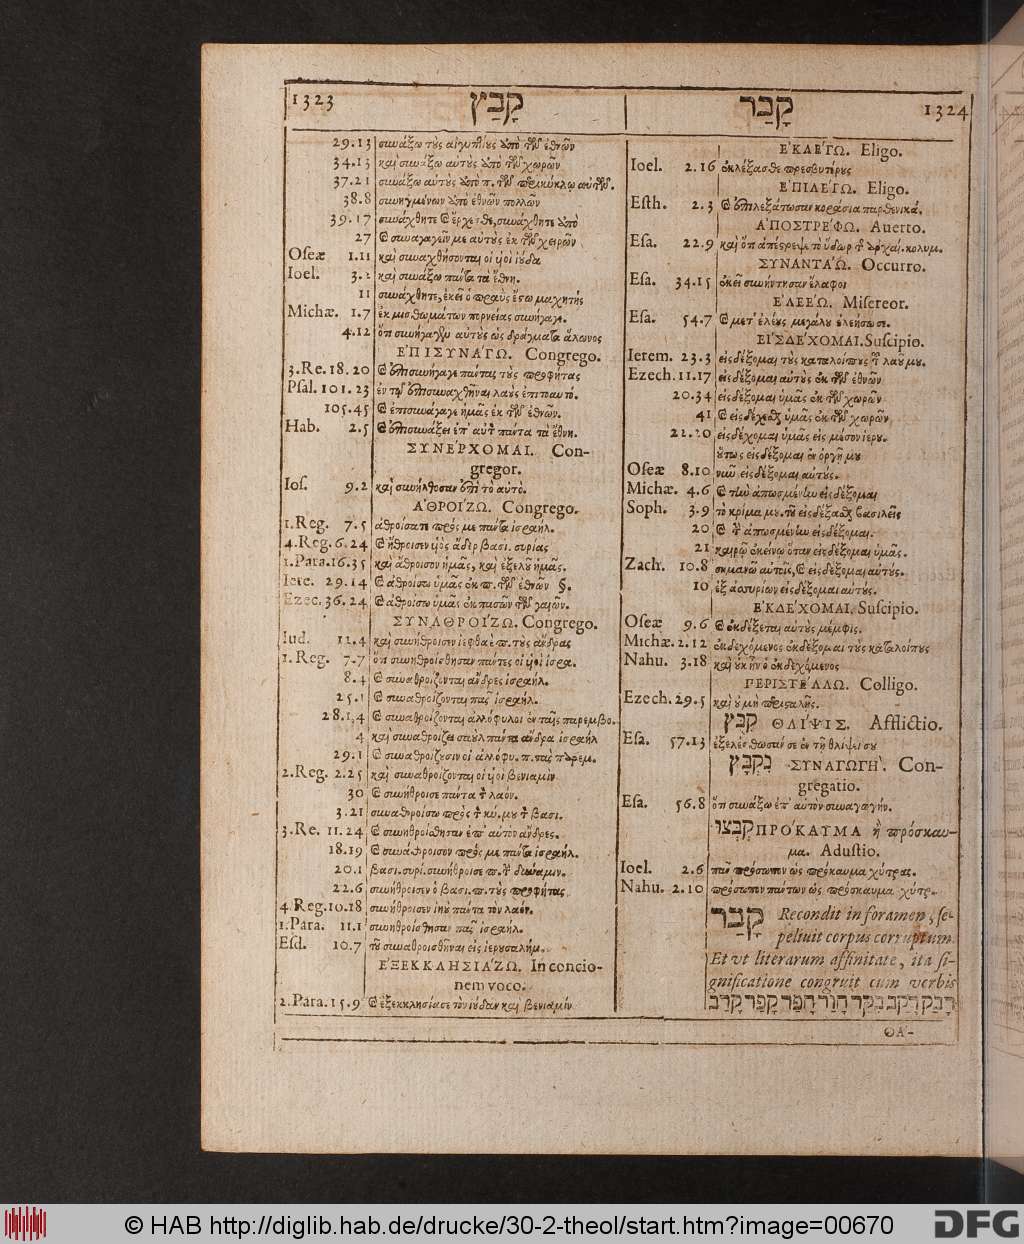 1323 קָבַץ קָבַר 1324
29.13 συνάξω τὺς αἰγυπτίυς ἀπὸ τῶν ἐθνῶν
34.13 καὶ συνάξω αὐτὺς ἀπὸ τῶν χωρῶν
37.21 συνάξω αὐτὺς ἀπὸ π. τῶν περικύκλῳ αὐτῶν.
38.8 συνηγμένων ἀπὸ ἐθνῶν πολλῶν
39.17 συνάχθητε καὶ ἔρχεσθε, συνάχθητε ἀπὸ
27 καὶ συναγαγεῖν με αὐτὺς ἐκ τῶν χειρῶν
Oseæ 1.11 καὶ συναχθήσονται οἱ υἱοὶ ἰύδα
Ioel. 3.2 καὶ συνάξω πάντα τὰ ἔθνη.
11 συνάχθητε, ἐκεῖ ὁ πραῢς ἔστω μαχητής
Michæ. 1.7 ἐκ μισθωμάτων πορνείας συνήγαγε.
4.12 ὅτι συνήγαγεν αὐτὺς ὡς δράγματα ἅλωνος
ἘΠΙΣΥΝΆΓΩ. Congrego.
3.Re. 18.20 καὶ ἐπισυνήγαγε πάντας τὺς προφήτας
Psal. 101.23 ἐν τῷ ἐπισυναχθῆναι λαὺς ἐπιτοαυτό.
105.45 καὶ ἐπισυνάγαγε ἡμᾶς ἐκ τῶν ἐθνῶν.
Hab. 2.5 καὶ ἐπισυνάξει ἐπ' αὐτὸν πάντα τὰ ἔθνη.
ΣΥΝΈΡΧΟΜΑΙ. Con-
gregor.
Ios. 9.2 καὶ συνήλθοσαν ἐπὶ τὸ αὐτὸ.
ἈΘΡΟΊΖΩ. Congrego.
1.Reg. 7.5 ἀθροίσατε πρός με πάντα ἰσραήλ.
4.Reg. 6.24 καὶ ἤθροισεν υἱὸς ἄδερ βασι. συρίας
1.Para. 16.35 καὶ ἄθροισον ἡμᾶς, καὶ ἐξελοῦ ἡμᾶς.
Iere. 29.14 καὶ ἀθροίσω ὑμᾶς ἐκ π. τῶν ἐθνῶν §.
Ezec. 36.24 καὶ ἀθροίσω ὑμᾶς ἐκ πασῶν τῶν γαιῶν.
ΣΥΝΑΘΡΟΊΖΩ. Congrego.
Iud. 12.4 καὶ συνήθροισεν ἰεφθαὲ π. τὺς ἄνδρας
1.Reg. 7.7 ὅτι συνηθροίσθησαν πάντες οἱ υἱοὶ ἰσρα.
8.4 καὶ συναθροίζονται ἄνδρες ἰσραήλ.
25.1 καὶ συναθροίζονται πᾶς ἰσραήλ.
28.1,4 καὶ συναθροίζονται ἀλλόφυλοι ἐν ταῖς παρεμβο.
4 καὶ συναθροίζει σαυλ πάντα ἄνδρα ἰσραήλ
29.1 καὶ συναθροίζυσιν οἱ ἀλλόφυ. π. τὰς παρεμ.
2.Reg. 2.25 καὶ συναθροίζονται οἱ υἱοὶ βενιαμὶν
30 καὶ συνήθροισε πάντα τὸν λαόν.
3.21 συναθροίσω πρὸς τὸν κύ. μυ τὸν βασι.
3.Re. 11.24 καὶ συνηθροίσθησαν ἐπ' αὐτὸν ἄνδρες.
18.19 καὶ συνάθροισον πρός με πάντα ἰσραήλ.
20.1 βασι. συρί. συνήθροισε π. τὴν δύναμιν.
22.6 συνήθροισεν ὁ βασι. π. τὺς προφήτας
4.Reg. 10.18 συνήθροισεν ἰηῢ πάντα τὸν λαόν.
1.Para. 11.1 συνηθροίσθησαν πᾶς ἰσραήλ.
Esd. 10.7 τοῦ συναθροισθῆναι εἰς ἱερυσαλήμ.
ἘΞΕΚΚΛΗΣΙΆΖΩ. In concio-
nem voco.
2.Para. 15.9 καὶ ἐξεκκλησίασε τὸν ἰύδαν καὶ βενιαμίν
ἘΚΛΈΓΩ. Eligo.
Ioel. 2.16 ἐκλέξασθε πρεσβυτέρυς
ἘΠΙΛΈΓΩ. Eligo.
Esth. 2.3 καὶ ἐπιλεξάτωσαν κοράσια παρθενικὰ.
ἈΠΟΣΤΡΈΦΩ. Auerto.
Esa. 22.9 καὶ ὅτι ἀπέστρεψε τὸ ὕδωρ τῆς ἀρχαί. κολυμ.
ΣΥΝΑΝΤΆΩ. Occurro.
Esa. 34.15 ἐκεῖ συνήντησαν ἔλαφοι
ἘΛΕΈΩ. Misereor.
Esa. 54.7 καὶ μετ' ἐλέυς μεγάλυ ἐλεήσω σε.
ΕἸΣΔΈΧΟΜΑΙ. Suscipio.
Ierem. 23.3 εἰσδέξομαι τὺς καταλοίπυς τοῦ λαοῦ μυ.
Ezech. 11.17 εἰσδέξομαι αὐτὺς ἐκ τῶν ἐθνῶν
20.34 εἰσδέξομαι ὑμᾶς ἐκ τῶν χωρῶν
41 καὶ εἰσδέχεσθαι ὑμᾶς ἐκ τῶν χωρῶν
22.20 εἰσδέχομαι ὑμᾶς εἰς μέσον ἱερυ.
ὕτως εἰσδέξομαι ἐν ὀργῇ μυ
Oseæ 8.10 νῦν εἰσδέξομαι αὐτύς.
Michæ. 4.6 καὶ τὴν ἀπωσμένην εἰσδέξομαι
Soph. 3.9 τὸ κρίμα μυ. τοῦ εἰσδέξασθαι βασιλεῖς
20 καὶ τὴν ἀπωσμένην εἰσδέξομαι.
21 καιρῷ ἐκείνῳ ὅταν εἰσδέξομαι ὑμᾶς.
Zach. 10.8 σημανῶ αὐτοῖς, καὶ εἰσδέξομαι αὐτύς.
10 ἐξ ἀσσυρίων εἰσδέξομαι αὐτύς.
ἘΚΔΈΧΟΜΑΙ. Suscipio.
Oseæ 9.6 καὶ ἐκδέξεται αὐτὺς μέμφις.
Michæ. 2.12 ἐκδεχόμενος ἐκδέξομαι τὺς καταλοίπυς
Nahu. 3.18 καὶ ὐκ ἦν ὁ ἐκδεχόμενος
ΠΕΡΙΣΤΈΛΛΩ. Colligo.
Ezech. 29.5 καὶ ὐ μὴ περισταλῇς.
קִבֻּץ ΘΛΊΨΙΣ. Afflictio.
Esa. 57.13 ἐξελέσθωσάν σε ἐν τῇ θλίψει συ
נִקְבָּץ ΣΥΝΑΓΩΓΉ. Con-
gregatio.
Esa. 56.8 ὅτι συνάξω ἐπ' αὐτὸν συναγωγήν.
קִבְּצוּ ΠΡΌΚΑΥΜΑ ἢ πρόσκαυ-
μα. Adustio.
Ioel. 2.6 πᾶν πρόσωπον ὡς πρόκαυμα χύτρας.
Nahu. 2.10 πρόσωπον πάντων ὡς πρόσκαυμα χύτρ.
קָבַר Recondit in foramen, se-
peliuit corpus corruptum.
Et vt literarum affinitate, ita si-
gnificatione congruit cum verbis
דָּבַק רָקַב בָּקַר חָוַר חָפַר קָפַר קָרַב
ΘΑ-
© HAB http://diglib.hab.de/drucke/30-2-theol/start.htm?image=00670 DFG